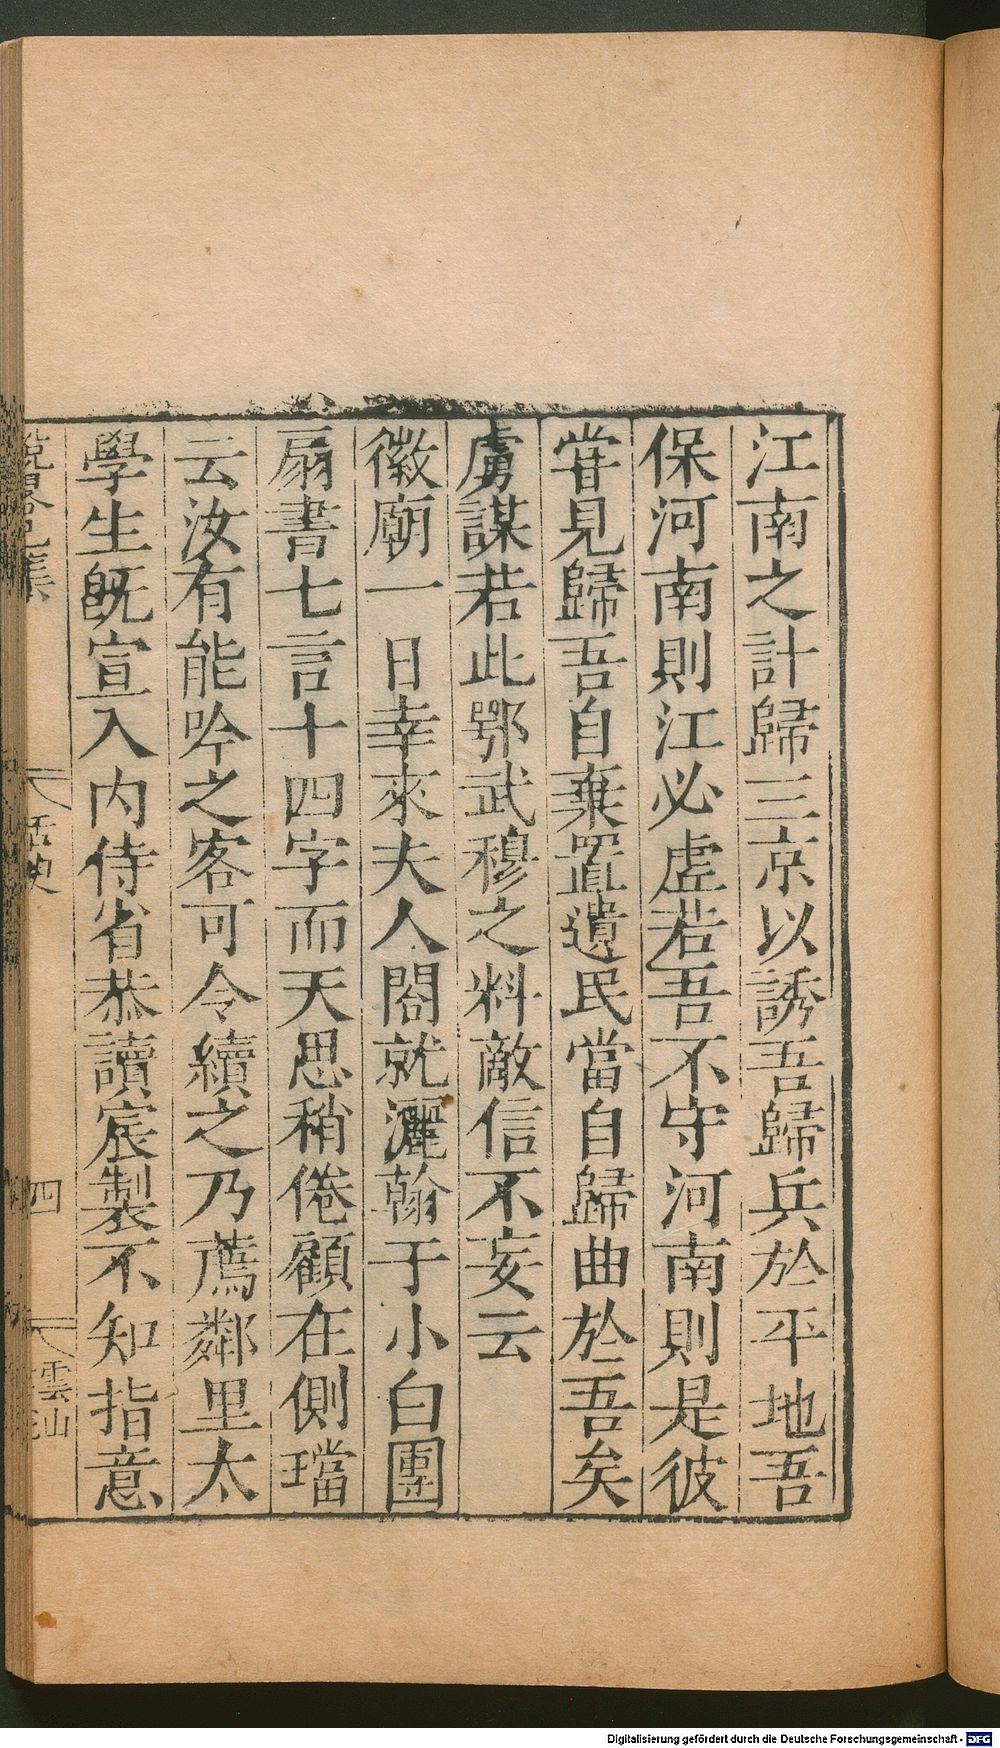 江南之計歸三京以誘吾歸兵於平地吾
保河南則江必虛若吾不守河南則是彼
甞見歸吾自棄置遺民當自歸曲於吾矣
虜謀若此鄂武穆之料敵信不妄云
徽廟一日幸來夫人閤就灑翰于小白團
扇書七言十四字而天思稍倦顧在側璫
云汝有能吟之客可令續之乃薦鄰里太
學生旣宣入內侍省恭讀宸製不知指意
四
Digitalisierung gefördert durch die Deutsche Forschungsgemeinschaft - DFG